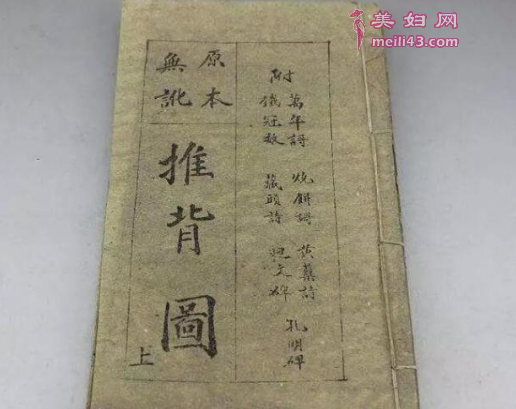 美妇网
meili43.com
附
萬年
燒餅
黃蘗詩
孔明碑
冠數
藏頭詩
文碑
原本
無訛
推背圖
上